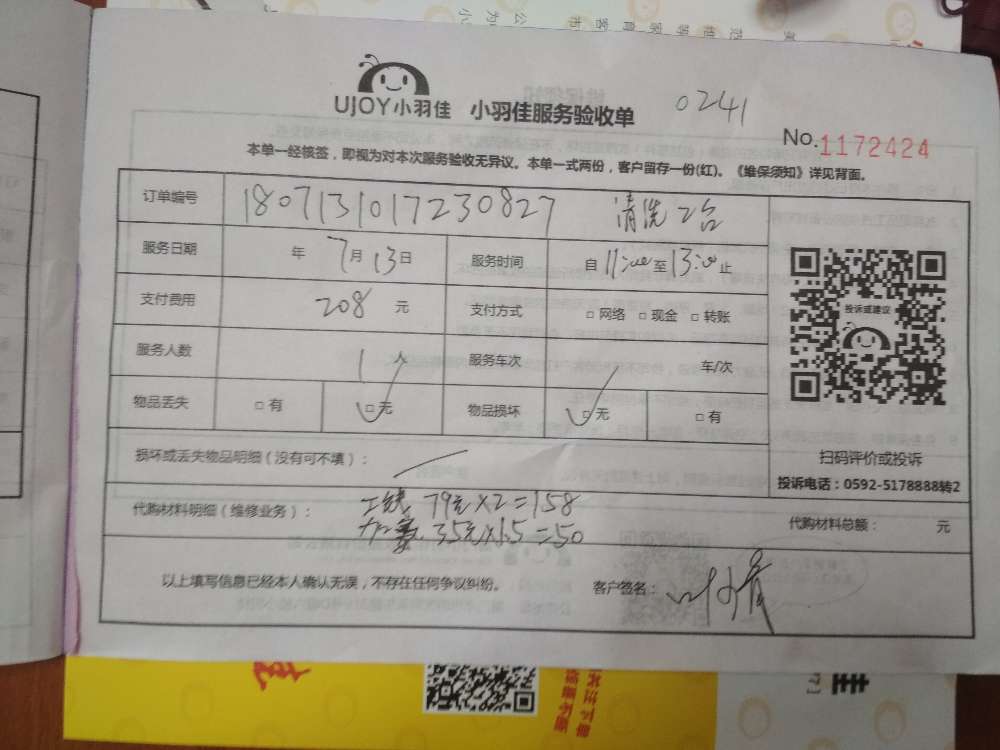 UJOY小羽佳 小羽佳服务验收单 0241
No.1172424
本单一经核签，即视为对本次服务验收无异议。本单一式两份，客户留存一份(红)。《维保须知》详见背面。
订单编号 180713101723082​7 清洗2台
服务日期 年 7月13日 服务时间 自11:00至13:00止
支付费用 208 元 支付方式 □网络 □现金 □转账
投诉或建议
服务人数 1 人 服务车次 车/次
物品丢失 □有 □无 物品损坏 □无 □有
扫码评价或投诉
投诉电话：0592-5178888转2
损坏或丢失物品明细（没有可不填）：
代购材料明细（维修业务）： 工钱 79元×2=158
35元×1.5=50
代购材料总额： 元
以上填写信息已经本人确认无误，不存在任何争议纠纷。 客户签名：
关注下单